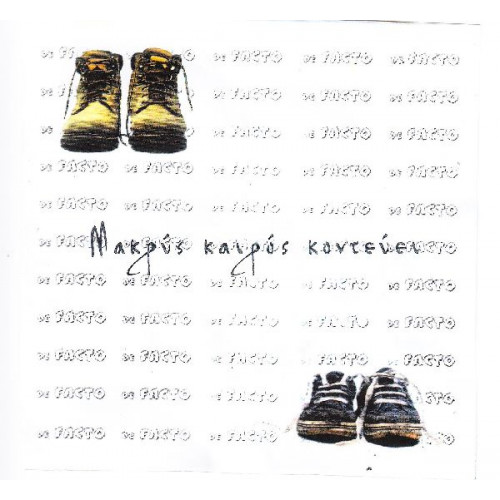 DE FACTO DE FACTO DE FACTO
DE FACTO DE FACTO DE FACTO
DE FACTO DE FACTO DE FACTO
DE FACTO DE FACTO DE FACTO DE FACTO DE FACTO
DE FACTO DE FACTO DE FACTO DE FACTO DE FACTO
Μακρύς καιρός κοντεύει
DE FACTO DE FACTO DE FACTO DE FACTO DE FACTO
DE FACTO DE FACTO DE FACTO DE FACTO DE FACTO
DE FACTO DE FACTO DE FACTO DE FACTO DE FACTO
DE FACTO DE FACTO DE FACTO
DE FACTO DE FACTO DE FACTO